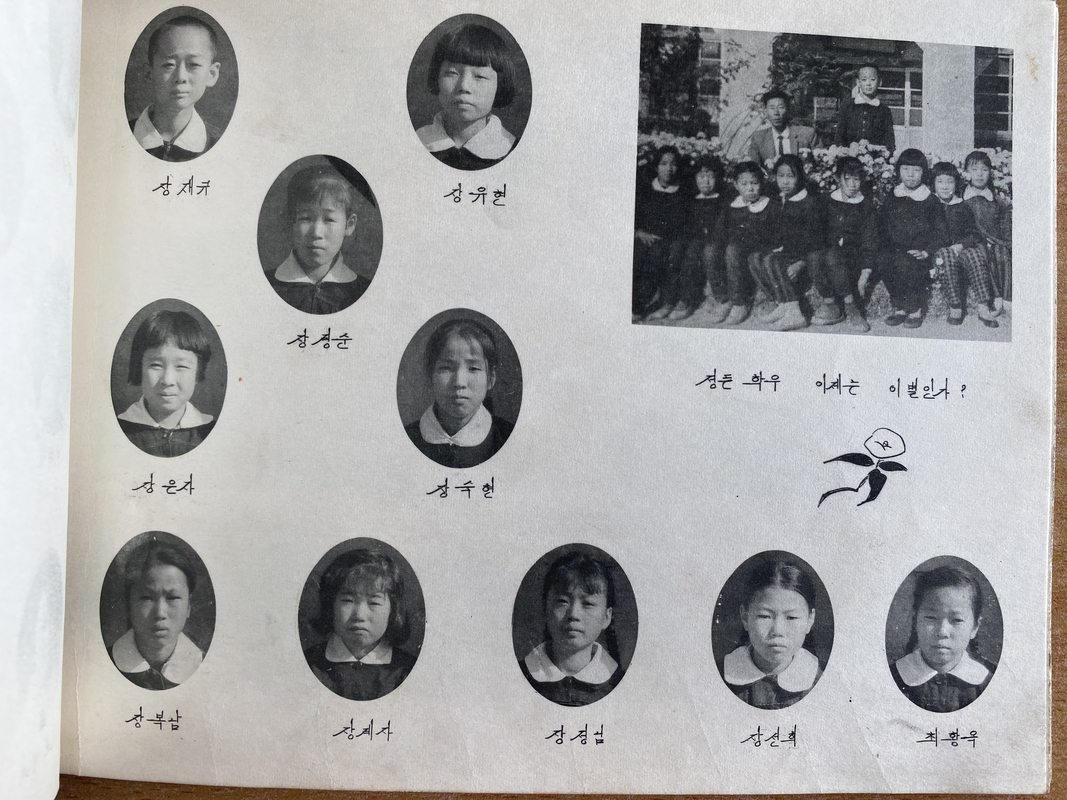 장재규
장유현
장경순
장은자
장숙현
정든 학우 이제는 이별인가?
장복삼
장제자
장경심
장선희
최황옥